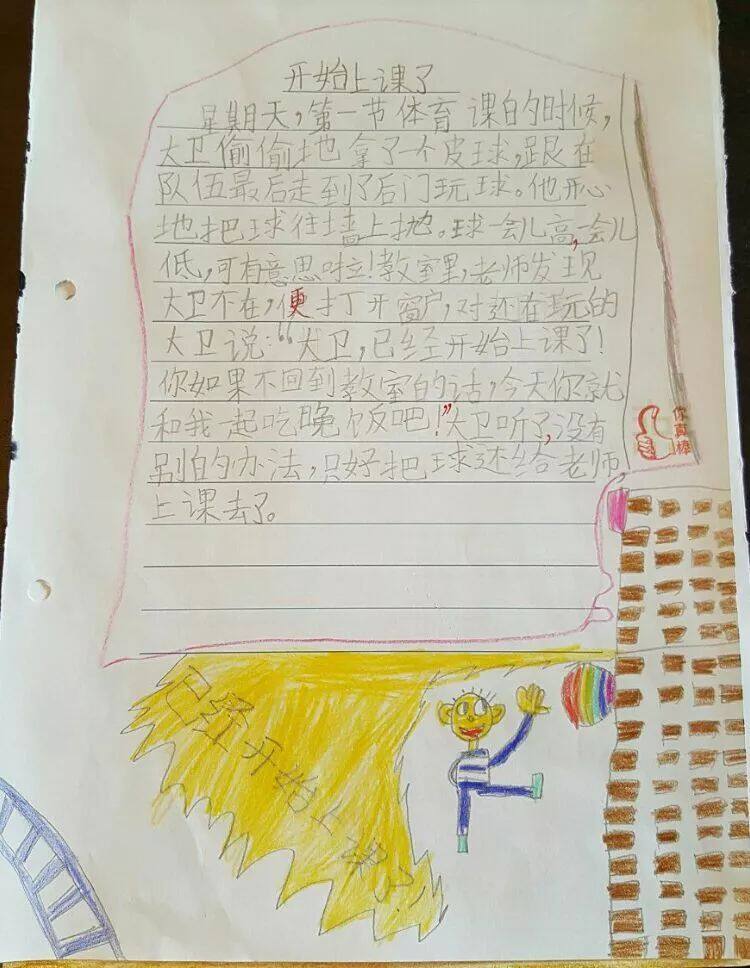 开始上课了
星期天，第一节体育课的时候，
大卫偷偷地拿了个皮球，跟在
队伍最后走到了后门玩球。他开心
地把球往墙上抛。球一会儿高，一会儿
低，可有意思啦！教室里，老师发现
大卫不在，便打开窗户，对还在玩的
大卫说：“大卫，已经开始上课了！
你如果不回到教室的话，今天你就
和我一起吃晚饭吧！”大卫听了，没有
别的办法，只好把球还给老师
上课去了。
你真棒
已经开始上课了！